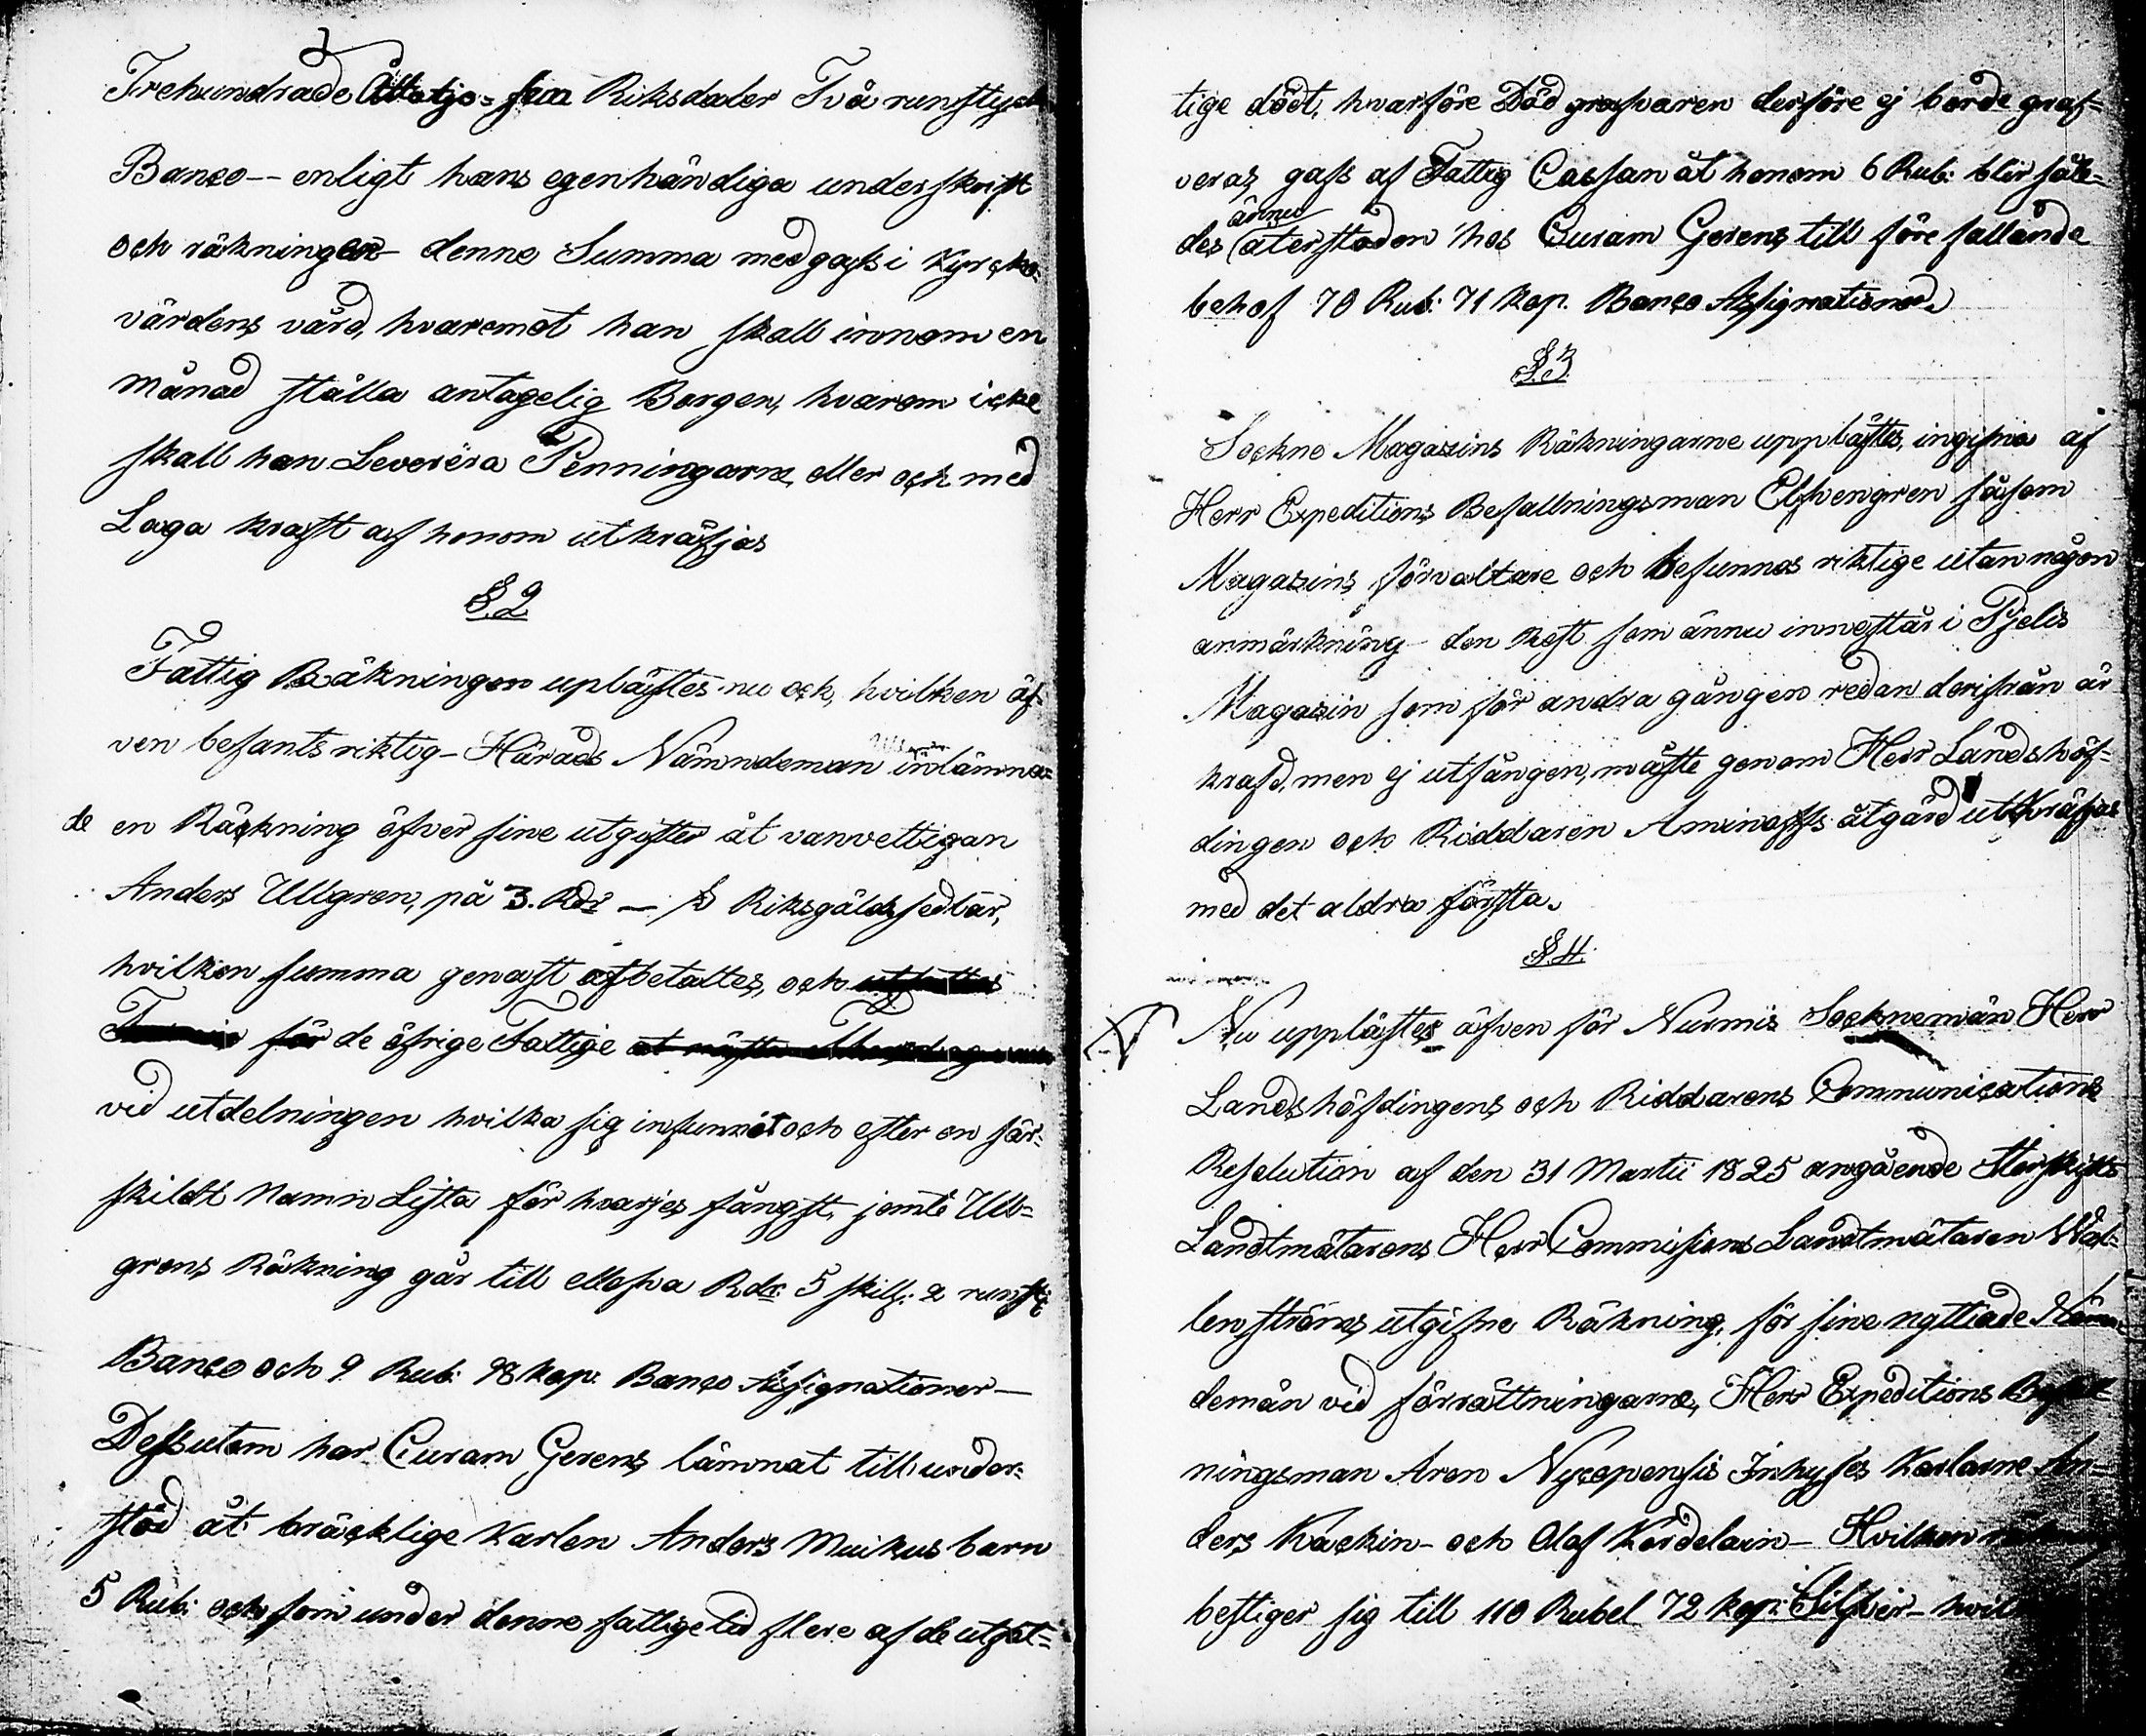 Trehundrade Åttatjo-fem Riksdaler Två runstyck
Banco -- enligt hans egenhändiga underskrift
och räkningen - denne Summa medgafs i Kyrcko-
värdens vård, hvaremot han skall innom en
månad ställa antagelig Borgen, hvarom icke
skall han Leverera Penningarne, eller och med
Laga kraft af honom utkräfjas
§.2
Fattig Räkningen upläftes nu och, hvilken äf-
ven befants riktig - Härads Nämndeman inlämna-
de en Räckning öfver sine utgifter åt vanvettigan
Anders Ullgren, på 3. Rdr — ß Riksgäldssedlar,
hvilken summa genast afbetaltes, och
för de öfrige Fattige
vid utdelningen hvilka sig infunnit och efter en sär-
skildt Namn Lista för hvarjes fångst, jemte Ull-
grens Räkning går till ellofva Rdr. 5 skill: 2 runst:
Banco och 9 Rub: 98 kop: Banco Assignationer —
Dessutom har Curam Gerens lämnat till under-
stöd åt bräcklige Karlen Anders Muikus barn
5 Rub: och som under denne fattige tid flere af de utfat-
tige dödt, hvarföre Död grafvaren derföre ej borde graf-
veras, gafs af Fattig Cassan åt honom 6 Rub: blir såle-
ännu
des återstoden hos Curam Gerens till förefallande
behof 70 Rub: 71 kop. Banco Assignationer.
§.3.
Sockne Magazins Räkningarne uppläftes, ingifna af
Herr Expeditions Befallningsman Elfvengren såsom
Magazins förvaltare och befunnos riktige utan någon
anmärkning - den Rest som ännu innestår i Pjelis
Magazin som för andra gången redan derifrån är
krafd, men ej utfången, måste genom Herr Landshöf-
dingen och Riddaren Aminoffs åtgärd utkräfjas
med det aldra första.
§.4.
Nu uppläftes äfven för Nurmis Socknemän Herr
Landshöfdingens och Riddarens Communications
Resolution af den 31 Martii 1825 angående Storskifts
Landtmätarens Herr Commissions Landtmätaren Wal-
lenströms utgifne Räkning, för sine nyttiade Nämn-
demän vid förrättningarne, Herr Expeditions Befall-
ningsman Aron Nycopensis Inhyses Karlarne An-
ders Kackin - och Olof Kordelain - Hvilken
bestiger sig till 110 Rubel 72 kop: Silfver - hvil